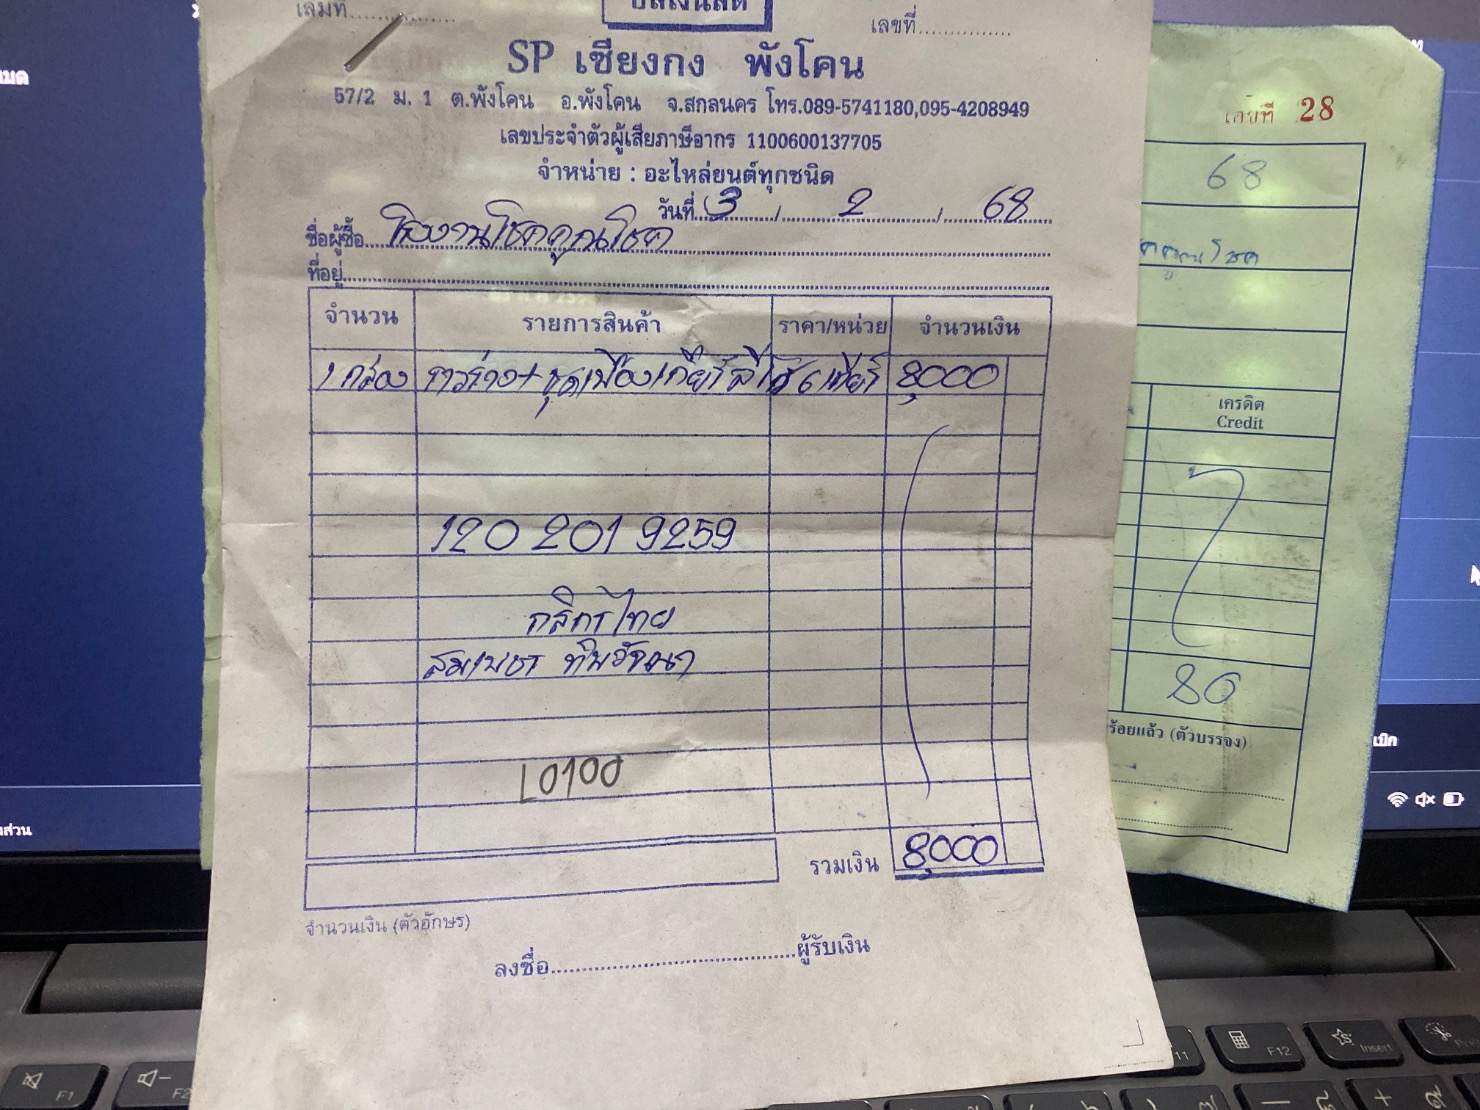 เล่มที่
บิลเงินสด
เลขที่
SP เซียงกง พังโคน
57/2 ม. 1 ต.พังโคน อ.พังโคน จ.สกลนคร โทร.089-5741180,095-4208949
เลขประจำตัวผู้เสียภาษีอากร 1100600137705
จำหน่าย : อะไหล่ยนต์ทุกชนิด
วันที่ 3 / 2 / 68
ชื่อผู้ซื้อ โรงงานโชคคูณโชค
ที่อยู่
จำนวน รายการสินค้า ราคา/หน่วย จำนวนเงิน
1 กล่อง ราวร่าง+ชุดเฟืองเกียร์ 6 เกียร์ 8,000
120 201 9259
กสิกรไทย
L0100
รวมเงิน 8,000
จำนวนเงิน (ตัวอักษร)
ลงชื่อ ผู้รับเงิน
เลขที่ 28
68
คคูณโชค
เครดิต
Credit
80
ร้อยแล้ว (ตัวบรรจง)
เบิก
มด
ส่วน
F1
F2
11
F12
Insert